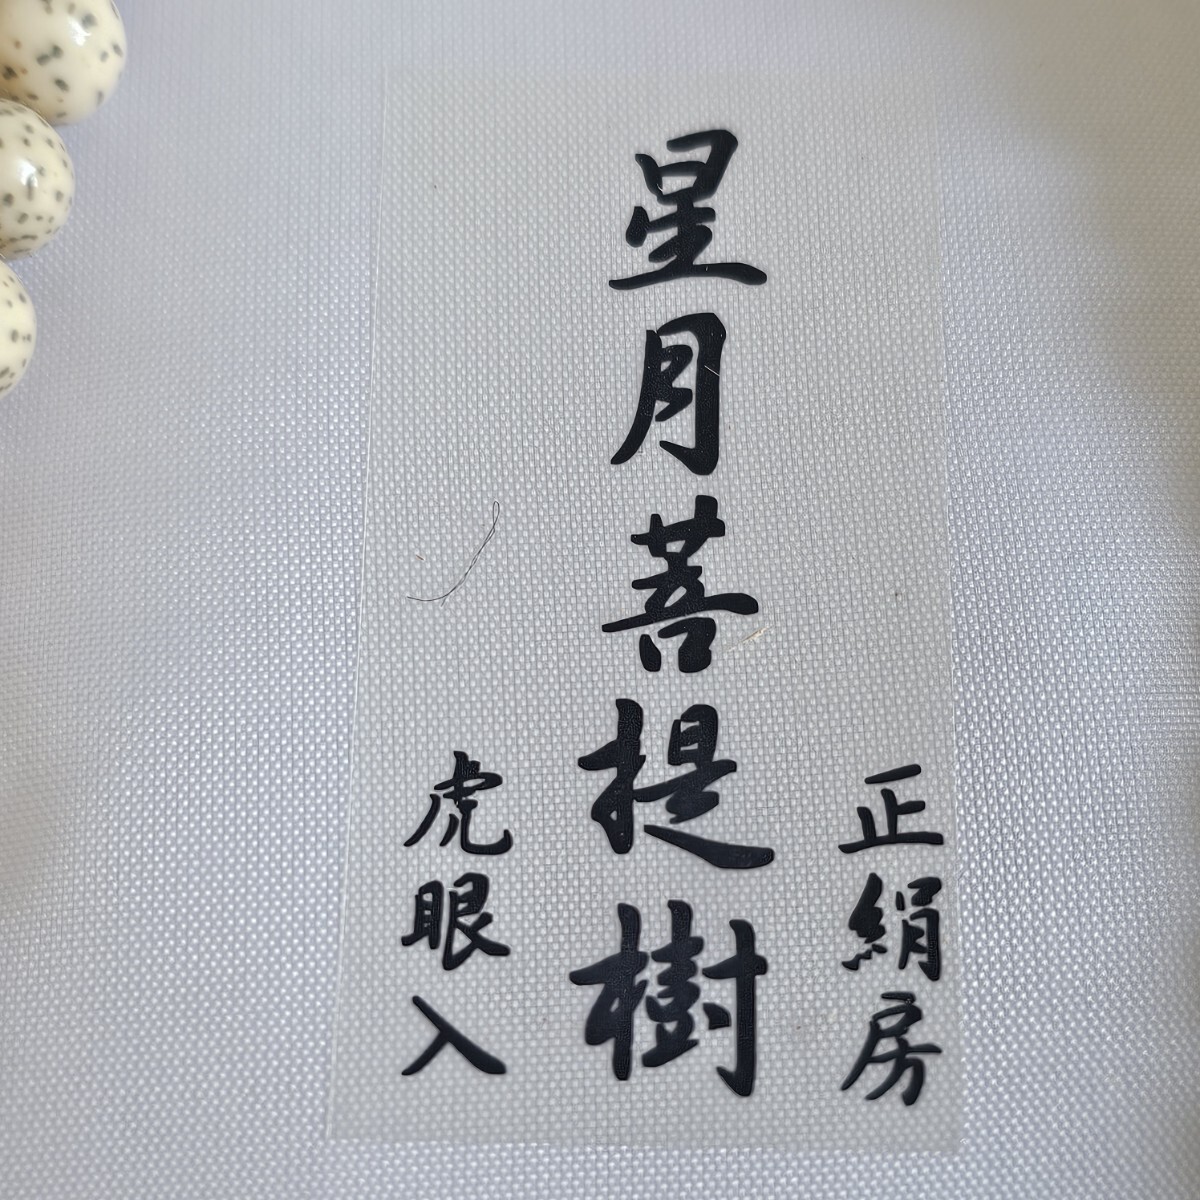 星月菩提樹
正絹房
虎眼入